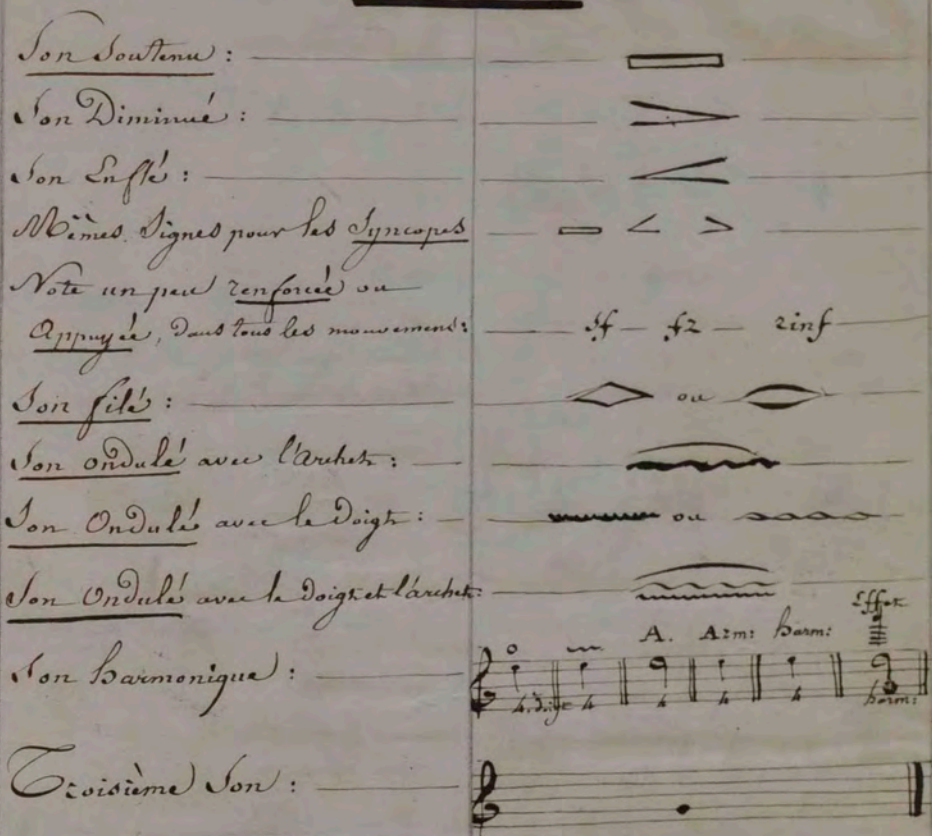 Son Soutenu :
Son Diminué :
Son Enflé :
Mêmes Signes pour les Syncopes
Note un peu renforcée ou
Appuyée, dans tous les mouvemens: ff fz rinf
Son filé : ou
Son ondulé avec l'Archet :
Son Ondulé avec le doigt : ou
Son Ondulé avec le doigt et l'archet:
Effet
A. Arm: harm:
Son harmonique :
4. doigt 4 4 4 4 harm:
Troisième Son :